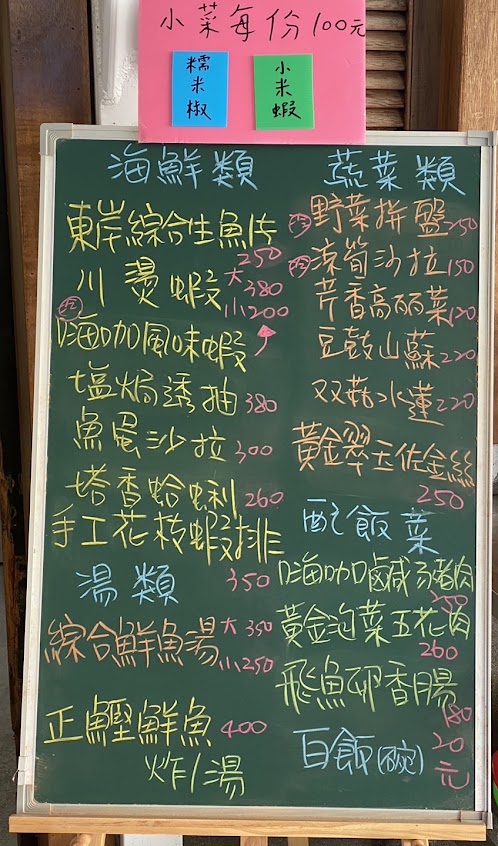 小菜每份100元
糯米椒
小米蝦
海鮮類
東岸綜合生魚片
250
川燙蝦 大380
小200
嗨咖風味蝦
塩焗透抽 380
魚蛋沙拉 300
塔香蛤蜊 260
手工花枝蝦排
350
湯類
綜合鮮魚湯 大350
小250
正鰹鮮魚 400
炸/湯
蔬菜類
野菜拼盤 250
涼筍沙拉 150
芹香高丽菜 120
豆鼓山蘇 220
双菇水蓮 220
黃金翠玉佐金絲
250
配飯菜
嗨咖鹹豬肉
黃金泡菜五花肉
260
飛魚卵香腸
180
白飯(碗) 20
元